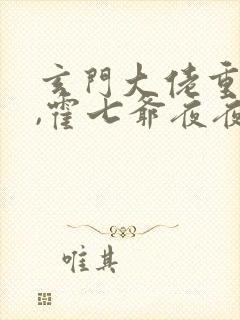 玄門大佬重
,霍七爺夜夜
唯其